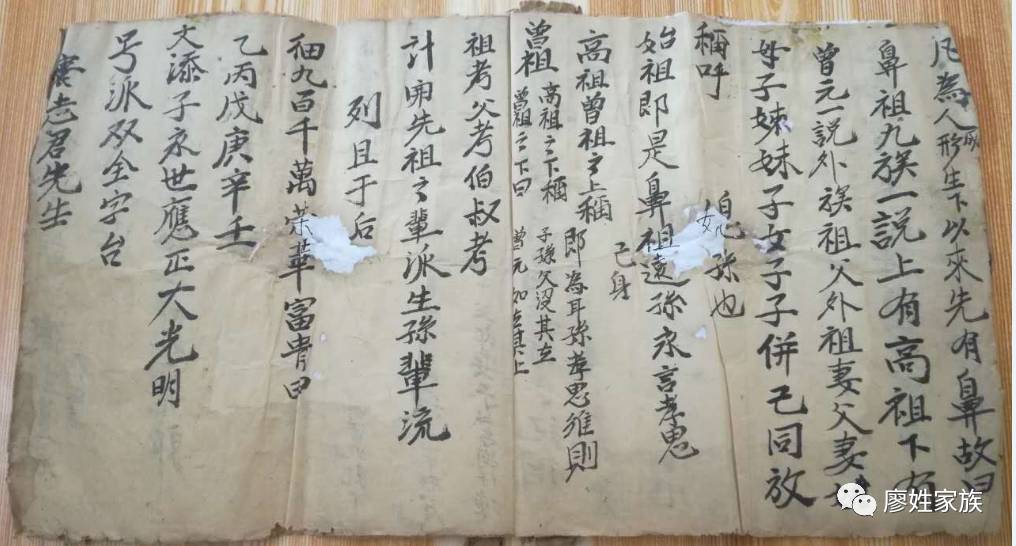 凡為人成形生下以來先有鼻故曰
鼻祖九族一説上有高祖下有
曾元一説外族祖父外祖妻父妻
母子妹妹子女子子併己同放
稱呼
媳孫也
始祖即是鼻祖遠孫永言孝思
己身
高祖曾祖之上稱
即為耳孫孝思維則
曾祖
高祖之下稱
曾祖之下曰
子孫父沒其在
曾元如在其上
祖考父考伯叔考
計開先祖之輩派生孫輩流
列且于后
細九百千萬荣華富貴曰
乙丙戊庚辛壬
文添子永世應正大光明
号派双全字台
老君先生
廖姓家族